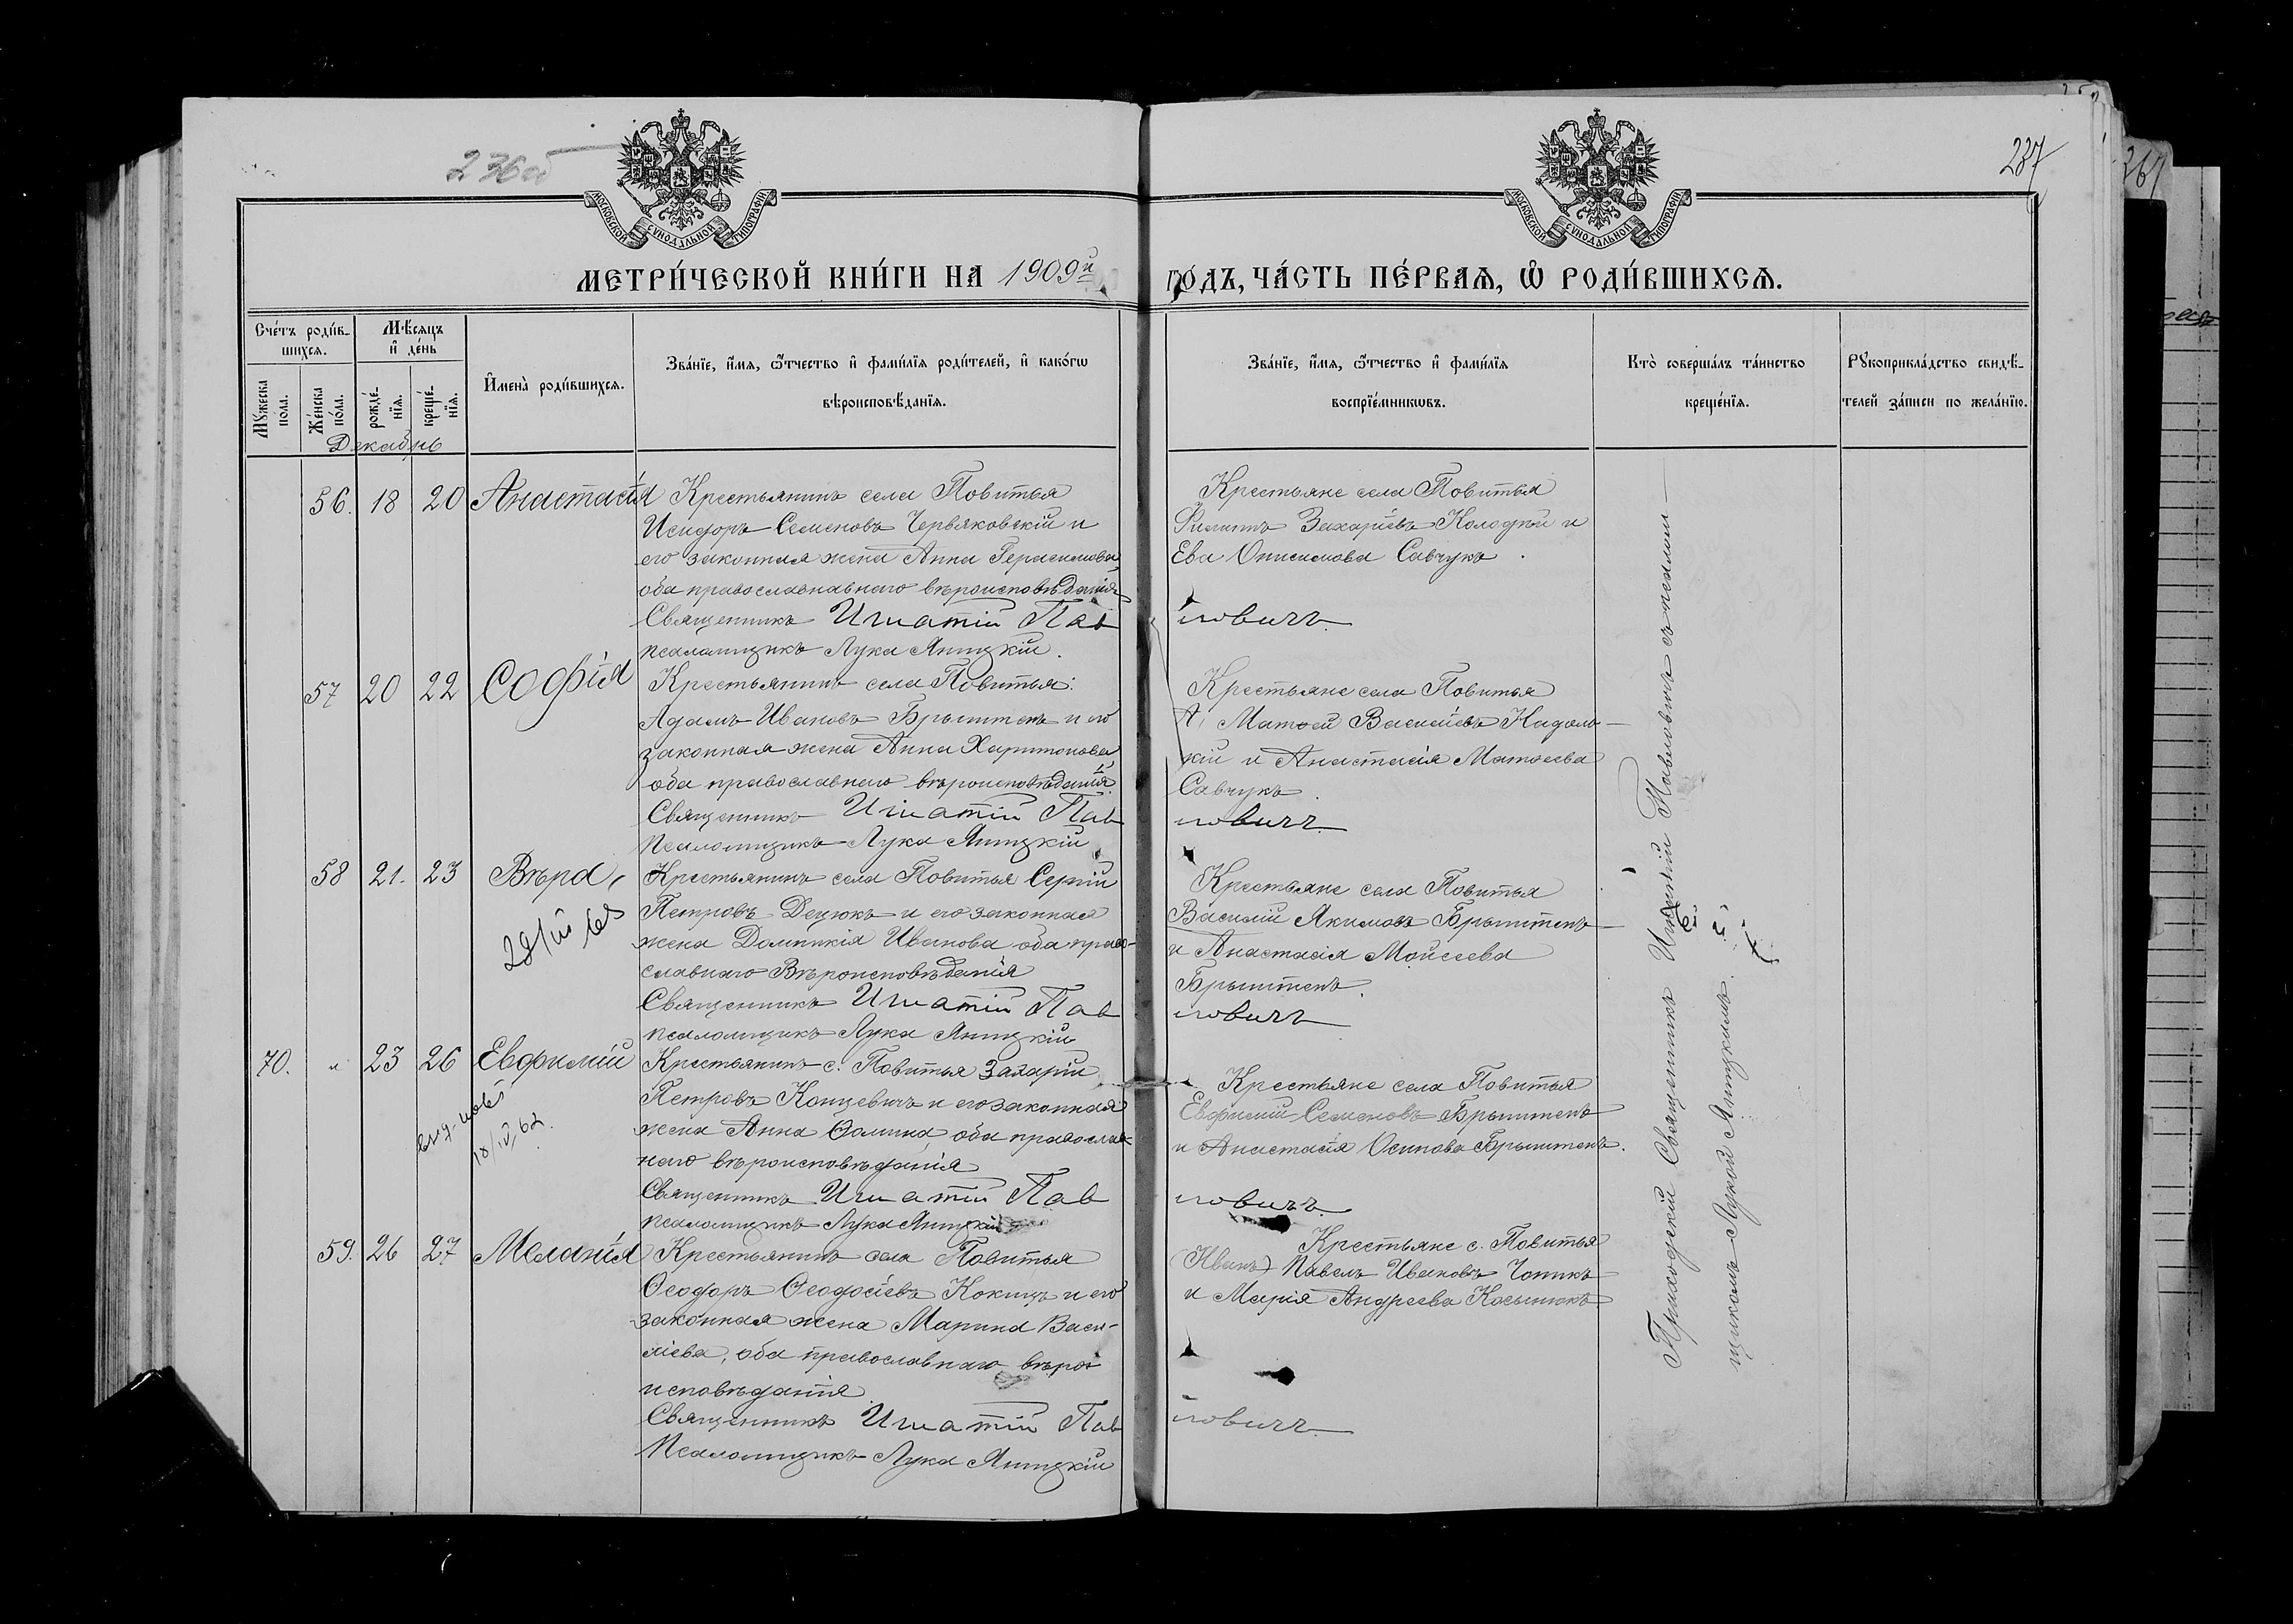 236об
237
МОСКОВСКОЙ СѴНОДАЛЬНОЙ ТИПОГРАФІИ
МОСКОВСКОЙ СѴНОДАЛЬНОЙ ТИПОГРАФІИ
МЕТРИ́ЧЕСКОЙ КНИ́ГИ НА 1909й ГО́ДЪ, ЧА́СТЬ ПЕ́РВАѦ, Ѡ҆ РОДИ́ВШИХСѦ.
Сче́тъ роди́в-
шихсѧ.
Мꙋ́жеска по́ла.
Же́нска по́ла.
Мѣ́сѧцъ
и҆ де́нь
рожде́-нїѧ.
креще́-нїѧ.
И҆мена̀ роди́вшихсѧ.
Зва́нїе, и҆́мѧ, ѻ҆́тчество и҆ фамилїѧ роди́телей, и҆ како́гѡ
вѣроисповѣ́данїѧ.
Зва́нїе, и҆́мѧ, ѻ҆́тчество и҆ фами́лїѧ
воспрїе́мникѡвъ.
Кто̀ соверша́лъ та́инство
креще́нїѧ.
Рꙋкоприкла́дство свидѣ́-
телей за́писи по жела́нїю.
Декабрь
56. 18 20 Анастасія
Крестьянинъ села Повитья
Исидоръ Семеновъ Червяковскій и
его законная жена Анна Герасимова
оба православнаго вѣроисповѣданія
Священникъ Игнатій Павловичъ
псаломщикъ Лука Яницкій.
Крестьяне села Повитья
Филиппъ Захаріевъ Колодчій и
Ева Онисимова Савчукъ.
57 20 22 Софія
Крестьянинъ села Повитья
Адамъ Ивановъ Брынтенъ и его
законная жена Анна Харитонова
оба православнаго вѣроисповѣданія.
Священникъ Игнатій Павловичъ
Псаломщикъ Лука Яницкій
Крестьяне села Повитья
Матѳей Васильевъ Надоль-
кій и Анастасія Матѳеева
Савчукъ.
58 21. 23 Вѣра
Крестьянинъ села Повитья Сергій
Петровъ Децюкъ и его законная
жена Домникія Иванова оба право-
славнаго Вѣроисповѣданія
Священникъ Игнатій Павловичъ
псаломщикъ Лука Яницкій
Крестьяне села Повитья
Василій Якимовъ Брынтенъ
и Анастасія Моисеева
Брынтенъ.
70. „ 23 26 Евфимій
18/IV, 62.
Крестьянинъ с. Повитья Захарій
Петровъ Концевичъ и его законная
жена Анна Ѳомина, оба православ-
наго вѣроисповѣданія
Священникъ Игнатій Павловичъ
псаломщикъ Лука Яницкій
Крестьяне села Повитья
Евфимій Семеновъ Брынтенъ
и Анастасія Осипова Брынтенъ.
59. 26 27 Меланія
Крестьянинъ села Повитья
Ѳеодоръ Ѳеодосіевъ Кокицъ и его
законная жена Марина Васи-
ліева, оба православнаго вѣро-
исповѣданія
Священникъ Игнатій Павловичъ
Псаломщикъ Лука Яницкій
Крестьяне с. Повитья
(Иванъ) Павелъ Ивановъ Чопикъ
и Марія Андреева Касьянюкъ
Приходскій Священникъ Игнатій Павловичъ съ псалом-
щикомъ Лукой Яницкимъ.